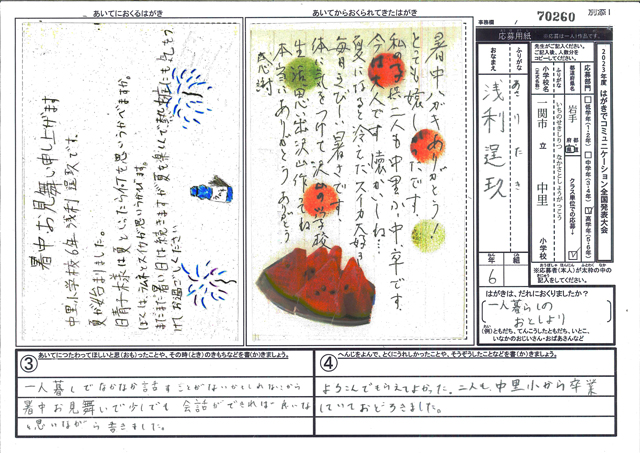 別添1
事務欄
70260
あいてにおくるはがき
あいてからおくられてきたはがき
応募用紙
2023年度 はがきでコミュニケーション全国発表大会
応募部門
低学年(1・2年)
中学年(3・4年)
高学年(5・6年)
クラス単位での応募
都道府県名
岩手
小学校名
いちのせきしりつ なかさとしょうがっこう
一関市 立 中里 小学校
ふりがな
あさり たき
おなまえ
浅利 逞玖
6 年
組
※応募者(本人)が太枠の中の
記入をしてください。
はがきは、だれにおくりましたか?
一人暮らしの
おとしより
(例)ともだち、てんこうしたともだち、いとこ、
いなかのおじいさん・おばあさんなど
暑中お見舞い申し上げます
中里小学校6年浅利逞玖です。
夏が始まりました。
日青子様は夏といったら何を思いうかべますか。
まだまだ暑い日は続きますが夏を楽しんで熱中症に気をつ
けてお過ごしください
暑中ハガキありがとう!
とても嬉しかったです。
私の子供二人も中里小、中、卒です。
今は大人です 懐かしいね…
夏になると冷えたスイカ大好き
毎日きびしい暑さです。
体に気をつけて沢山の学校
生活思い出沢山作ってね
本当にありがとうありがとう
感謝
③
あいてにつたわってほしいと思(おも)ったことや、その時(とき)のきもちなどを書(か)きましょう。
一人暮しでなかなか話すことがないかもしれないから
暑中お見舞いで少しでも会話ができれば良いな
と思いながら書きました。
④
へんじをよんで、とくにうれしかったことや、そうぞうしたことなどを書(か)きましょう。
よろこんでもらえてよかった。二人も、中里小から卒業
していておどろきました。